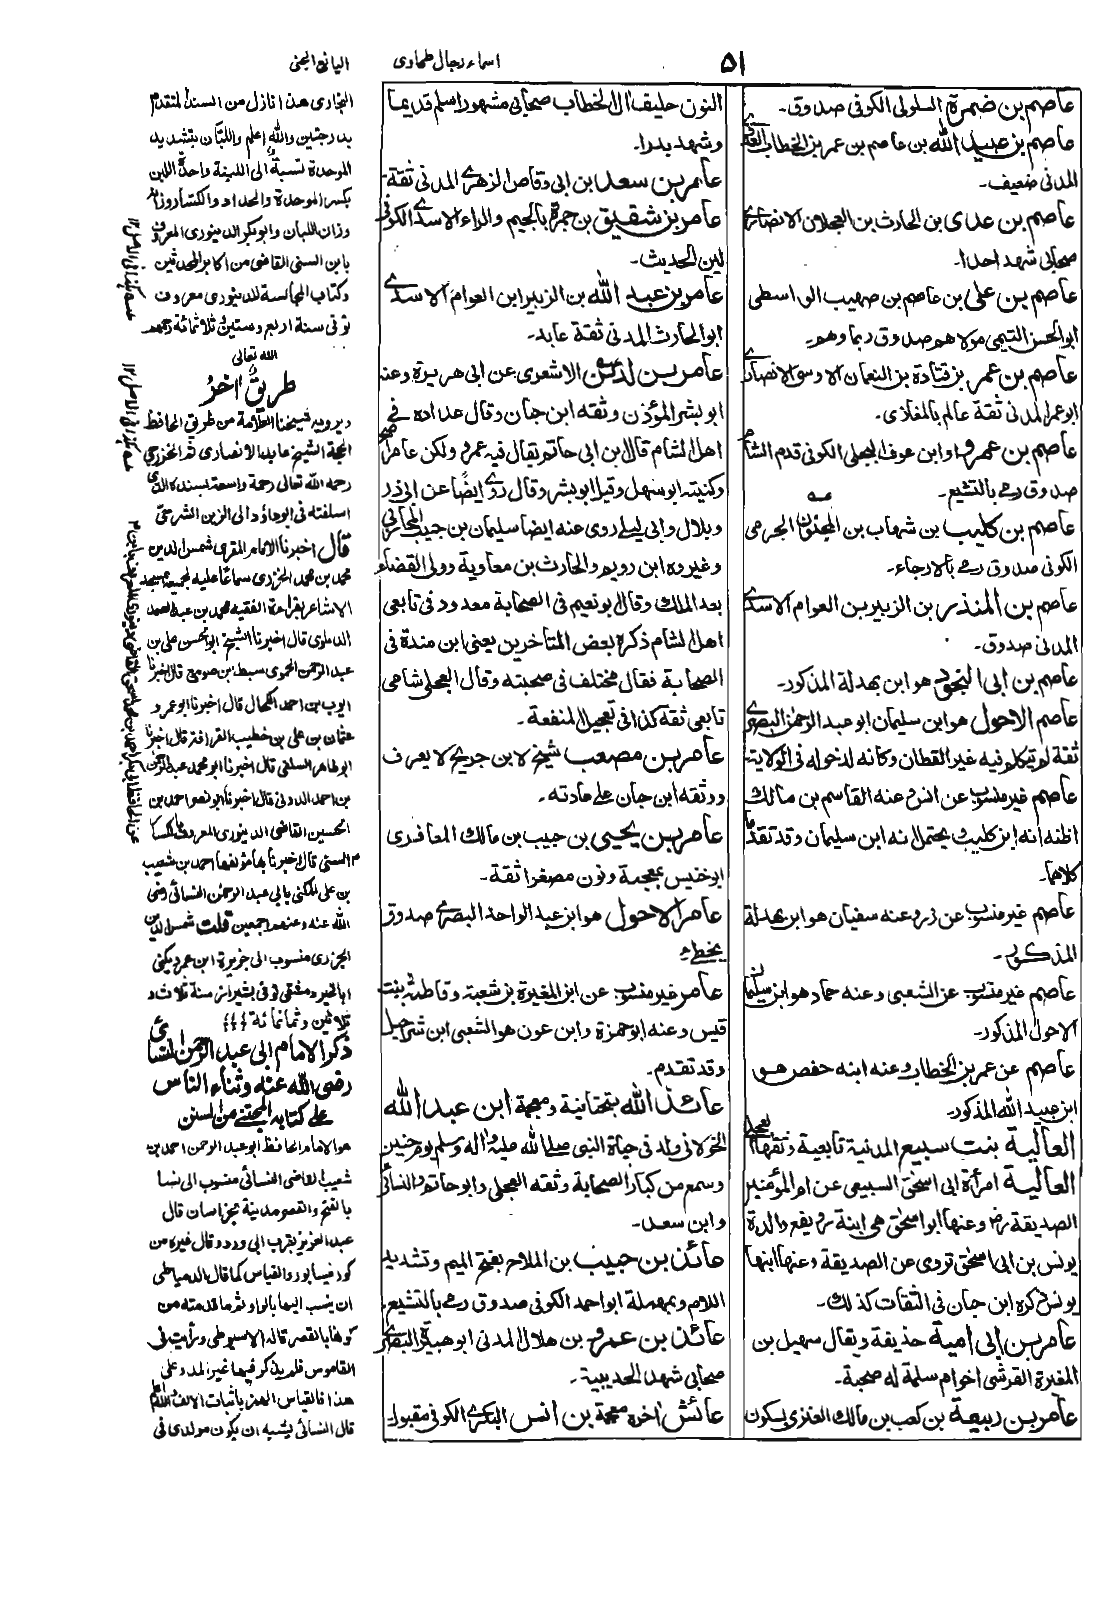 ٥١
اسماء رجال طحاوی
اليانع الجنی
عاصم بن ضمرة السلولی الکوفی صدوق۔
عاصم بن عبيد الله بن عاصم بن عمر بن الخطاب العدوی
المدنی ضعيف۔
عاصم بن عدی بن الحارث بن العجلان الانصاری
صحابی شهد احدا۔
عاصم بن علی بن عاصم بن صهيب الواسطی
ابو الحسن التيمی مولاهم صدوق ربما وهم۔
عاصم بن عمر بن قتادة بن النعمان الاوسی الانصاری
ابو عمر المدنی ثقة عالم بالمغازی۔
عاصم بن عمرو او ابن عوف البجلی الکوفی قدم الشام
صدوق رمی بالتشيع۔
عاصم بن کليب بن شهاب بن المجنون الجرمی
الکوفی صدوق رمی بالارجاء۔
عاصم بن المنذر بن الزبير بن العوام الاسدی
المدنی صدوق۔
عاصم بن ابی النجود هو ابن بهدلة المذکور۔
عاصم الاحول هو ابن سليمان ابو عبد الرحمٰن البصری
ثقة لم يتکلم فيه غير القطان وکانه لدخوله فی الولاية
عاصم غير منسوب عن انس وعنه القاسم بن مالك
اظنه انه ابن کليب ويحتمل انه ابن سليمان وقد تقدم
کلاهما۔
عاصم غير منسوب عن زر وعنه سفيان هو ابن بهدلة
المذکور۔
عاصم غير منسوب عن الشعبی وعنه حماد هو ابن سليمان
الاحول المذکور۔
عاصم عن عمر بن الخطاب وعنه ابنه حفص هو
ابن عبيد الله المذکور۔
العالية بنت سبيع المدنية تابعية وثقها العجلی
العالية امرأة ابی اسحٰق السبيعی عن ام المؤمنين
الصديقة رض وعنها ابو اسحٰق هی ابنة يفع والدة
يونس بن ابی اسحٰق تروی عن الصديقة وعنها ابنها
يونس ذکره ابن حبان فی الثقات کذلك۔
عامر بن ابی امية حذيفة ويقال سهيل بن
المغيرة القرشی اخو ام سلمة له صحبة۔
عامر بن ربيعة بن کعب بن مالك العنزی بسکون
النون حليف اٰل الخطاب صحابی مشهور اسلم قديما
وشهد بدرا۔
عامر بن سعد بن ابی وقاص الزهری المدنی ثقة۔
عامر بن شقيق بن جمرة بالجيم والراء الاسدی الکوفی
لين الحديث۔
عامر بن عبد الله بن الزبير ابن العوام الاسدی
ابو الحارث المدنی ثقة عابد۔
عامر بن لدين الاشعری عن ابی هريرة وعنه
ابو بشر المؤذن وثقه ابن حبان وقال عداده فی
اهل الشام قال ابن ابی حاتم يقال فيه عمرو ولکن عامر اصح
وکنيته ابو سهل وقيل ابو بشر وقال روی ايضًا عن ابی ذر
وبلال وابی ليلی روی عنه ايضا سليمان بن حبيب المحاربی
وغيره ابن رويم والحارث بن معاوية وولی القضاء
بعد الملك وقال ابو نعيم فی الصحابة معدود فی تابعی
اهل الشام ذکره بعض المتاخرين يعنی ابن مندة فی
الصحابة فقال مختلف فی صحبته وقال العجلی شامی
تابعی ثقة کذا فی تعجيل المنفعة۔
عامر بن مصعب شيخ لابن جريج لا يعرف
ووثقه ابن حبان علی عادته۔
عامر بن يحيی بن حبيب بن مالك المعافری
ابو خنيس بمعجمة ونون مصغرا ثقة۔
عامر الاحول هو ابن عبد الواحد البصری صدوق
يخطیء
عامر غير منسوب عن ابن المغيرة بن شعبة وفاطمة بنت
قيس وعنه ابو حمزة وابن عون هو الشعبی ابن شراحيل
وقد تقدم۔
عائذ الله بتحتانية ومعجمة ابن عبد الله
الخولانی ولد فی حياة النبی صلی الله عليه واله وسلم يوم حنين
وسمع من کبار الصحابة وثقه العجلی وابو حاتم والنسائی
وابن سعد۔
عائذ بن حبيب بن الملاح بفتح الميم وتشديد
اللام وبمهملة ابو احمد الکوفی صدوق رمی بالتشيع
عائذ بن عمرو بن هلال المدنی ابو هبيرة البصری
صحابی شهد الحديبية۔
عائش اخره معجمة بن انس البکری الکوفی مقبول۔
البخاری هذا نازل من السند المتقدم
بدرجتين والله اعلم واللبّان بتشديد
الموحدة نسبة الی اللبنة واحدة اللبن
بکسر الموحدة والحداد والکسار وزان
وزان اللبان وابو بکر الدينوری المعروف
بابن السنی القاضی من اکابر المحدثين
وکتاب المجالسة للدينوری معروف
توفی سنة اربع وستين وثلاثمائة رحمهم
الله تعالی
طريقٌ اٰخرُ
ويرويه شيخنا العلامة من طريق الحافظ
الحجة الشيخ عابد الانصاری ثم الخزرجی
رحمه الله تعالی رحمة واسعة بسنده الذی
اسلفته فی ابی داؤد الی الزين الشرجی
قال اخبرنا الامام المقری شمس الدين
محمد بن محمد الجزری سماعًا عليه لجميعه بمسجد
الاشاعر بقراءة الفقيه محمد بن عبد الصمد
الدملوی قال اخبرنا الشيخ ابو الحسن علی بن
عبد الرحمٰن الحموی سبط بن صومع قال اخبرنا
ايوب ابن احمد الکحال قال اخبرنا ابو عمرو
عثمان بن علی بن خطيب القرافة قال اخبرنا
ابو طاهر السلفی قال اخبرنا ابو محمد عبد الرحمٰن
بن احمد الدونی قال اخبرنا ابو نصر احمد بن
الحسين القاضی الدينوری المعروف بالکسا
السنی قال اخبرنا بها مؤلفها احمد بن شعيب
بن علی المکنی بابی عبد الرحمٰن النسائی رضی
الله عنه وعنهم اجمعين قلت شمس الدين
الجزری منسوب الی جزيرة ابن عمر ويکنی
ابا الخير دمشقی توفی بشيراز سنة ثلاث و
ثلاثين وثمانمائة
ذکر الامام ابی عبد الرحمٰن النسائی
رضی الله عنه وثناء الناس
علی کتابه المجتبٰی من السنن
هو الامام الحافظ ابو عبد الرحمٰن احمد بن
شعيب القاضی النسائی منسوب الی نسا
بالفتح والقصر مدينة بخراسان قال
عبد العزيز بقرب ابی ورد وقال غيره من
کور نيسابور والقياس کما قال الدمياطی
ان ينسب اليها بالواو نثرما قدمته من
کونها بالقصر قاله الاسيوطی ورأيت فی
القاموس فلم يذکر فيها غير المد وعلی
هذا فالقياس الهمز باثبات الالف والله اعلم
قال النسائی يشبه ان يکون مولدی فی